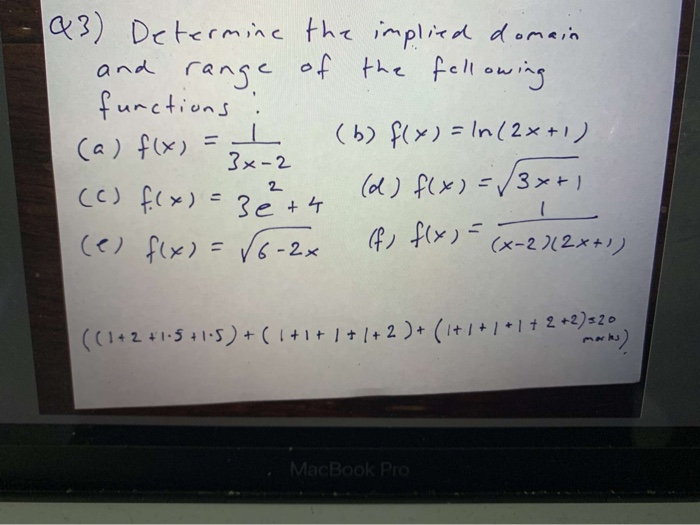 Q3) Determine the implied domain
and range of the fellowing
functions :
(a) f(x) = 1/(3x-2) (b) f(x) = ln(2x+1)
(c) f(x) = 3e² + 4 (d) f(x) = √(3x+1)
(e) f(x) = √(6-2x) (f) f(x) = 1/((x-2)(2x+1))
((1+2+1.5+1.5)+(1+1+1+1+2)+(1+1+1+1+2+2)=20 marks)
MacBook Pro